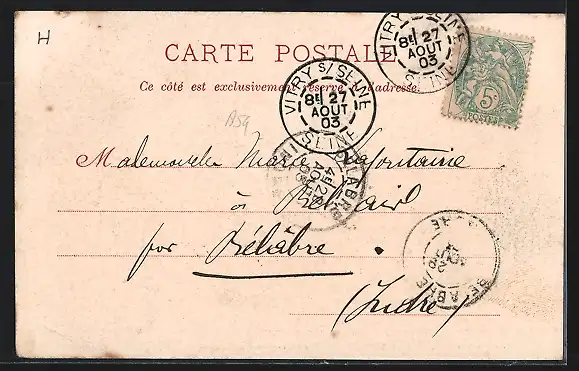 H
CARTE POSTALE
VITRY S/SEINE
8E 27
AOUT
03
SEINE
VITRY S/SEINE
8E 27
AOUT
03
SEINE
5c
POSTES
Ce côté est exclusivement réservé à l'adresse.
Mademoiselle Marie Lafontaine
à Bel-air
par Bélâbre
(Indre)
BELABRE
28
AOUT